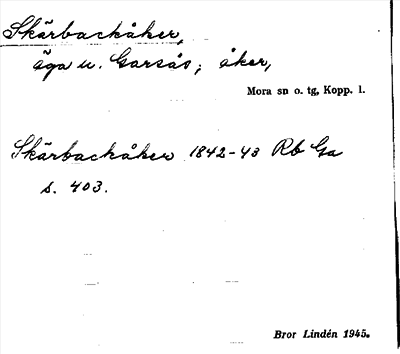 Skärbackåker,
äga u. Garsås; åker,
Mora sn o. tg, Kopp. l.
Skärbackåker 1842-43 Rb Ga
s. 403.
Bror Lindén 1945.